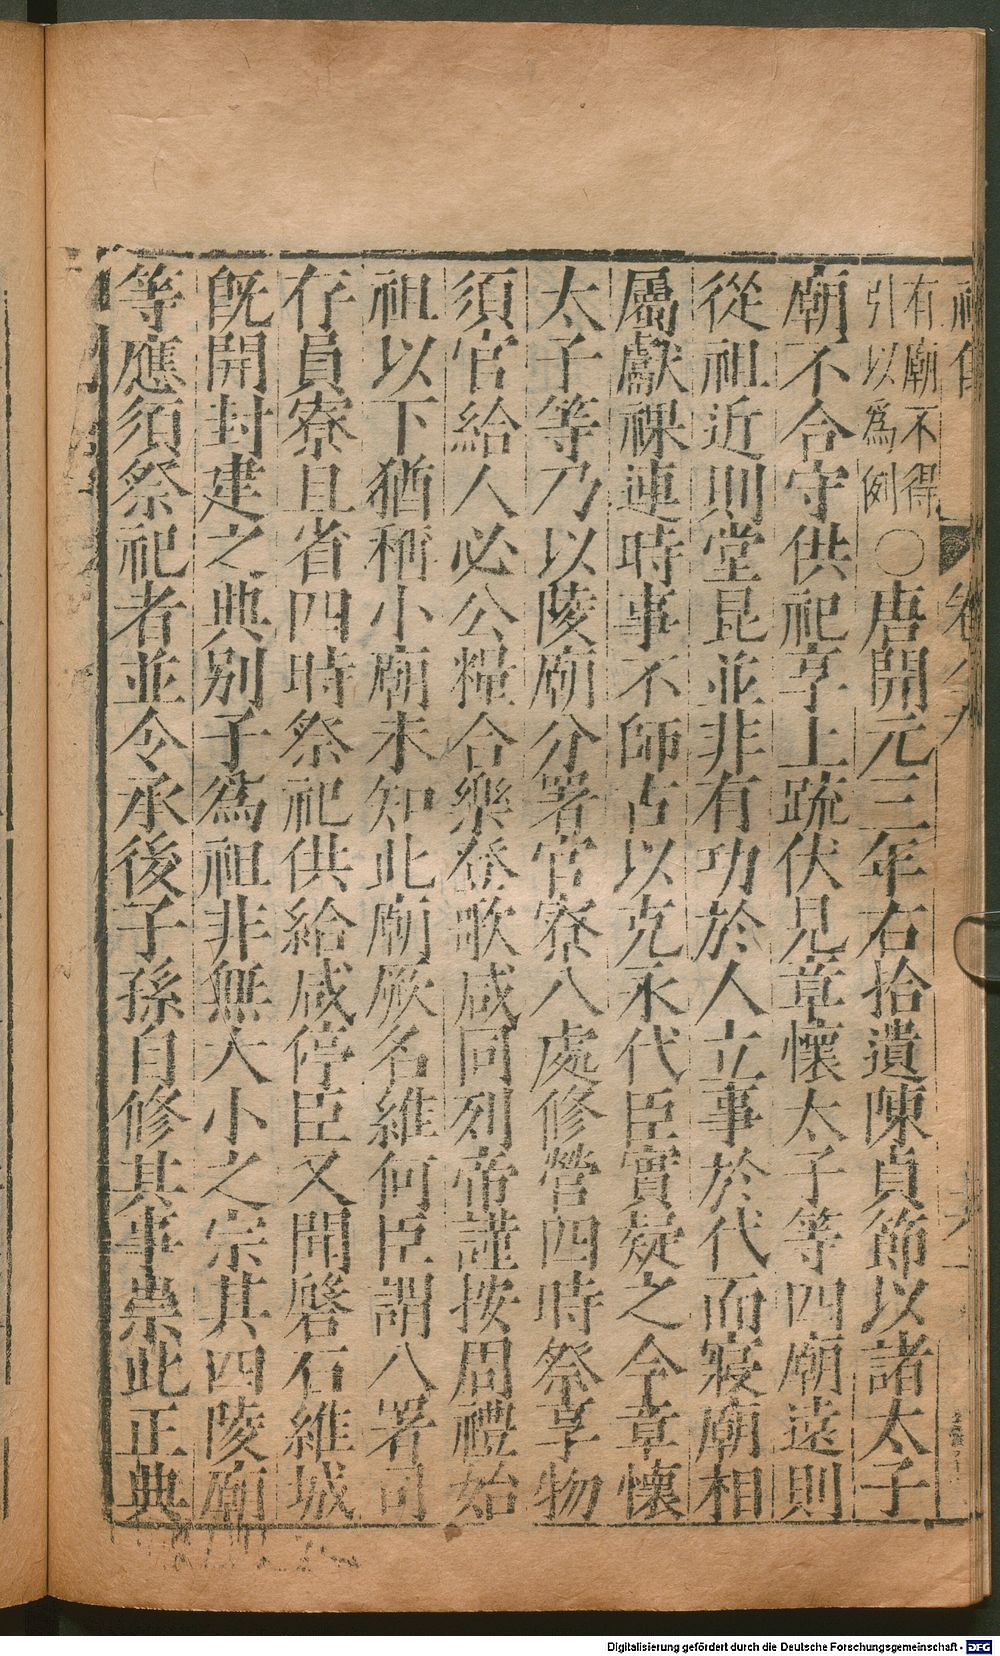 有廟不得
引以爲例
〇唐開元三年右拾遺陳貞節以諸太子
廟不合守供祀享上䟽伏見章懷太子等四廟遠則
從祖近則堂昆並非有功於人立事於代而寢廟相
屬獻祼連時事不師古以克永代臣實疑之今章懷
太子等乃以陵廟分署官寮八處修營四時祭享物
須官給人必公糧合樂登歌咸同列帝謹按周禮始
祖以下猶稱小廟未知此廟厥名維何臣謂八署司
存員寮且省四時祭祀供給咸停臣又聞磐石維城
旣開封建之典別子爲祖非無大小之宗其四陵廟
等應須祭祀者並令承後子孫自修其事崇此正典
Digitalisierung gefördert durch die Deutsche Forschungsgemeinschaft - DFG